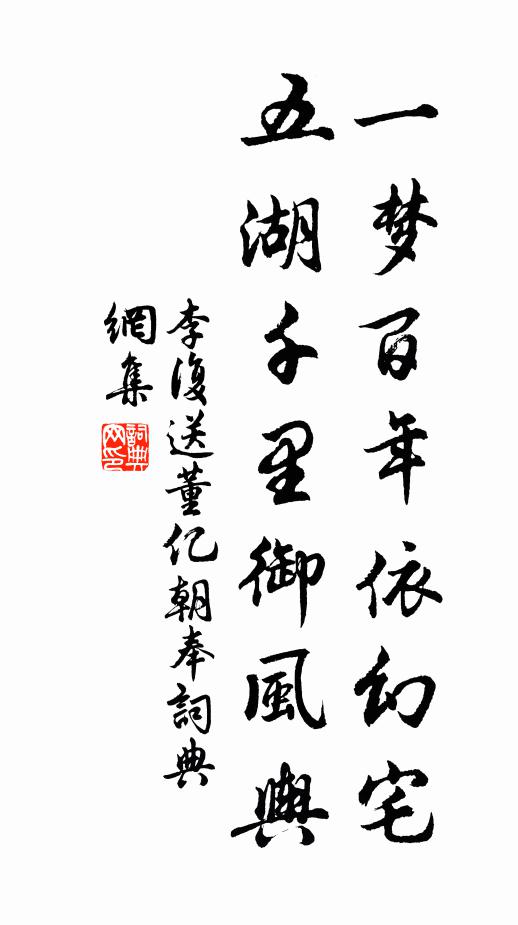 一梦百年依幻宅
五湖千里御風輿
李復送董亿朝奉詞典
網集
詞典
网印